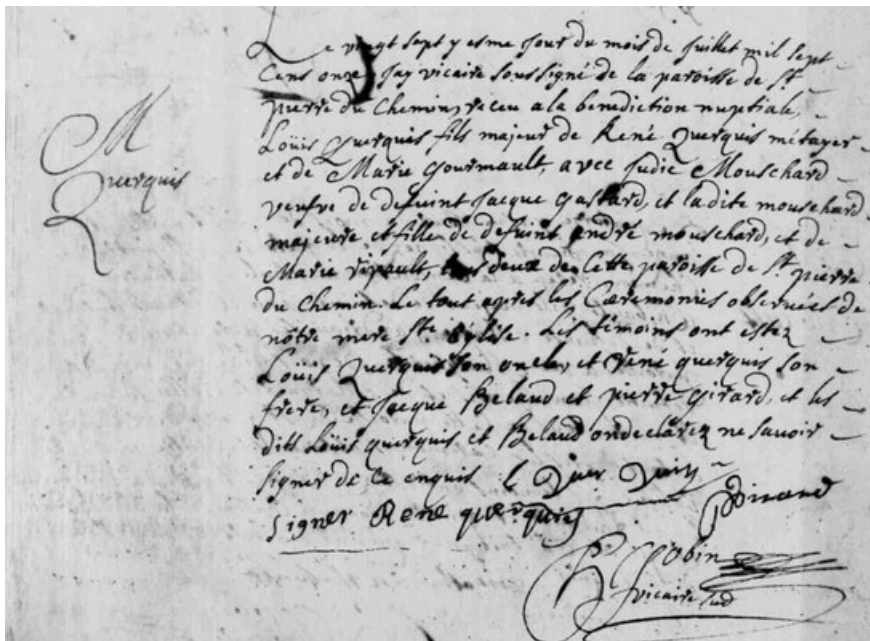 M
Querquis
Le vingt sept yesme Jour du mois de Juillet mil sept
Cens onze Jay vicaire soussigné de la paroisse de St
pierre du Chemin, receu a la benediction nuptiale,
Loüis Querquis fils majeur de René Querquis métayer
et de Marie Gourmault, avec Judic Mouschard
veufve de defuint Jacque Gastard, et la dite mouschard
majeure et fille de defuint andré mouschard, et de
Marie ripault, tous deux de Cette paroisse de St pierre
du Chemin. Le tout apres les Cæremonies observées de
nôtre mere Ste église. Les témoins ont estez
Loüis Querquis son oncle, et rené querquis son
frere, et Jacque Belaud et pierre girard, et les
dits Loüis querquis et Belaud on declarez ne savoir
signer de ce enquis
signer René querquis
Gobin
vicaire sud